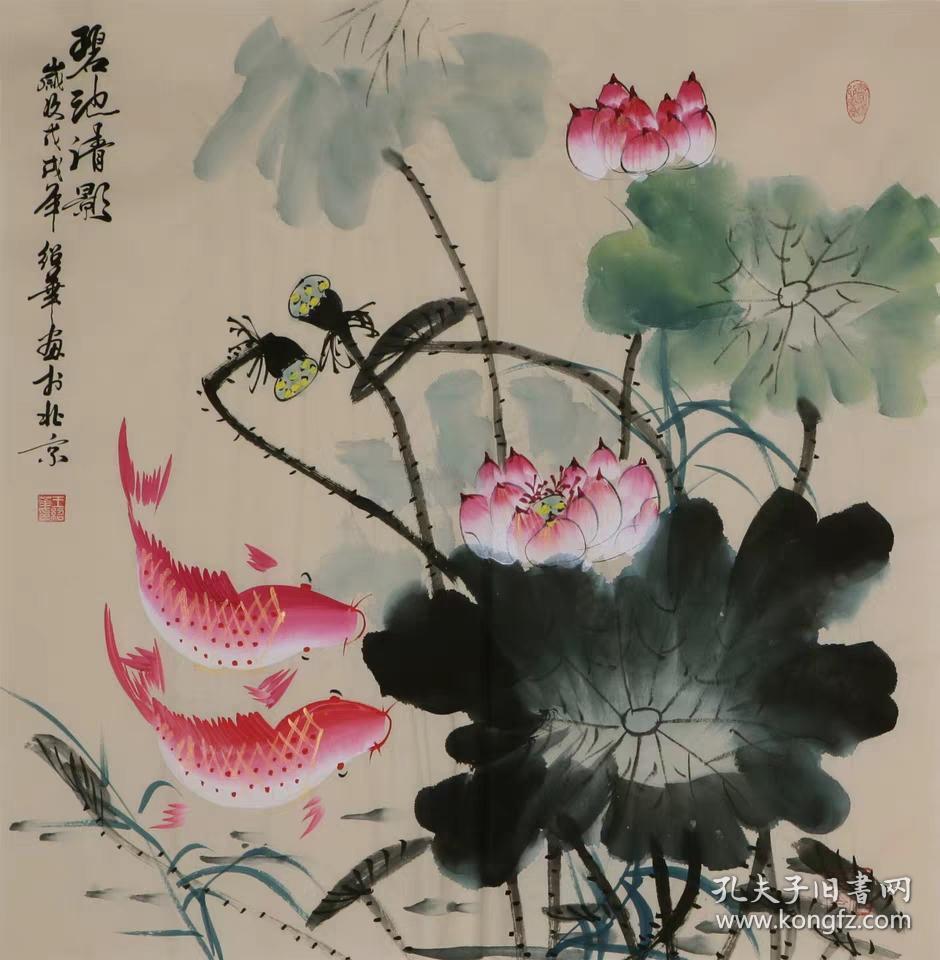 碧池清影
歲次戊戌年 绍華畫於北京
王绍
孔夫子旧書网
www.kongfz.com